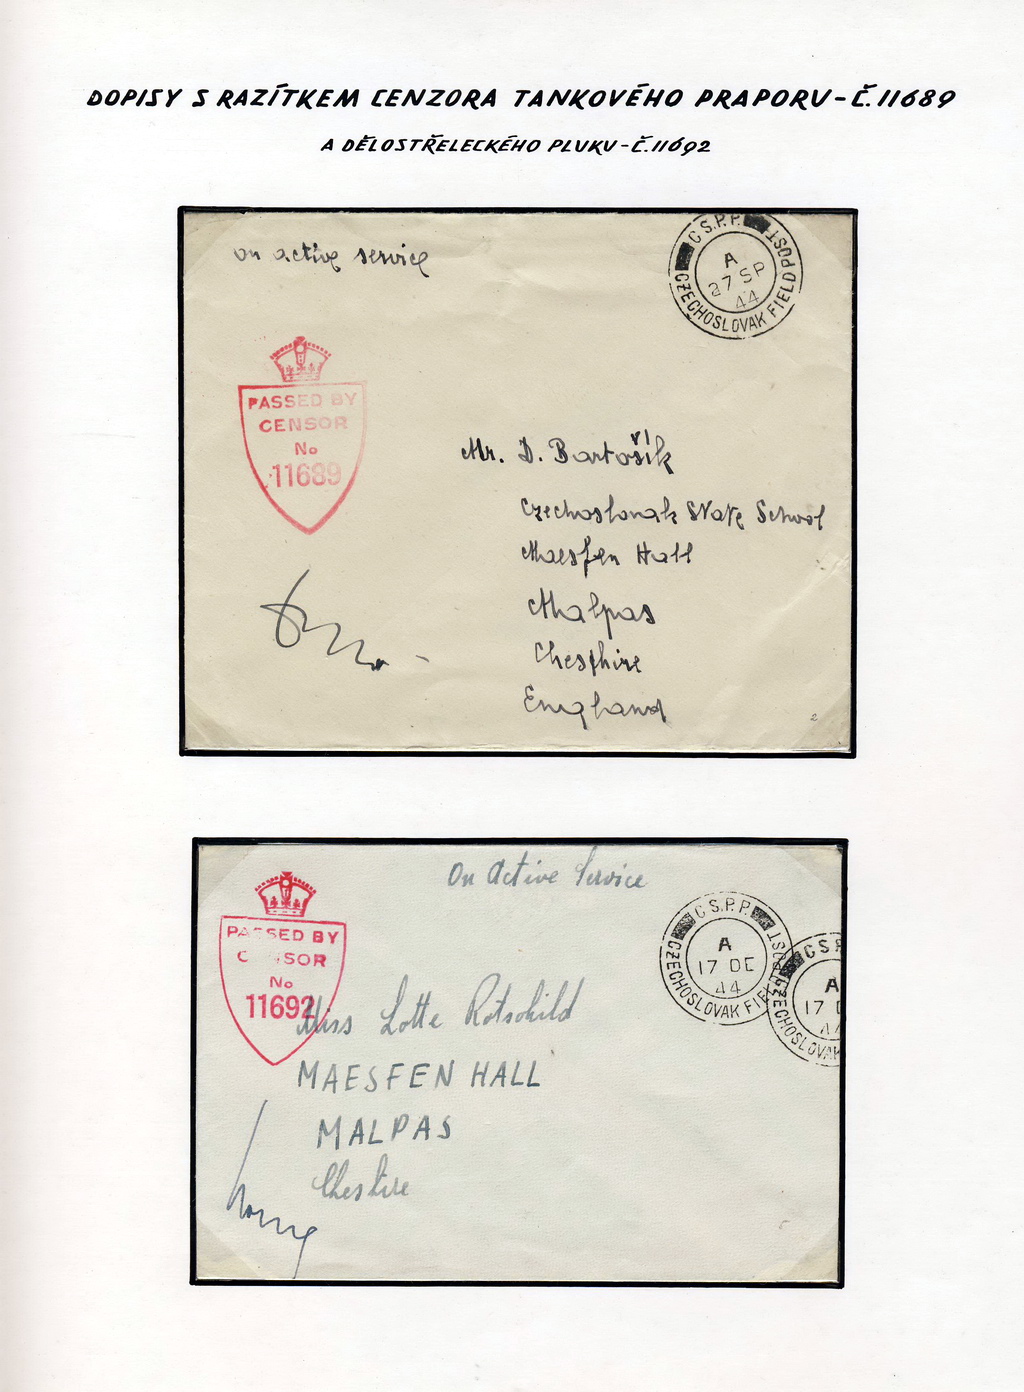 DOPISY S RAZÍTKEM CENZORA TANKOVÉHO PRAPORU - Č. 11689
A DĚLOSTŘELECKÉHO PLUKU - Č. 11692
on active service
C.S.P.P.
A
27 SP
44
CZECHOSLOVAK FIELD POST
PASSED BY
CENSOR
No
11689
Mr. D. Bartošík
Czechoslovak State School
Maesfen Hall
Malpas
Chesthire
England
2
On Active Service
C.S.P.P.
A
17 DE
44
CZECHOSLOVAK FIELD POST
CSP
A
17 D
44
CZECHOSLOVAK
PASSED BY
CENSOR
No
11692
Miss Lotte Rotschild
MAESFEN HALL
MALPAS
Cheshire